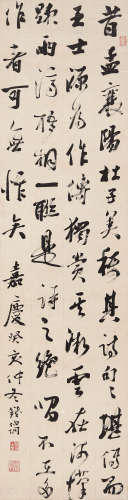 昔孟襄陽杜子美稱其詩句々堪傳而
王士源為作傳獨賞其微雲在河漢
疎雨滴梧桐一聯是詩之絕唱不在多
作者可無怍矣 嘉慶癸亥仲冬